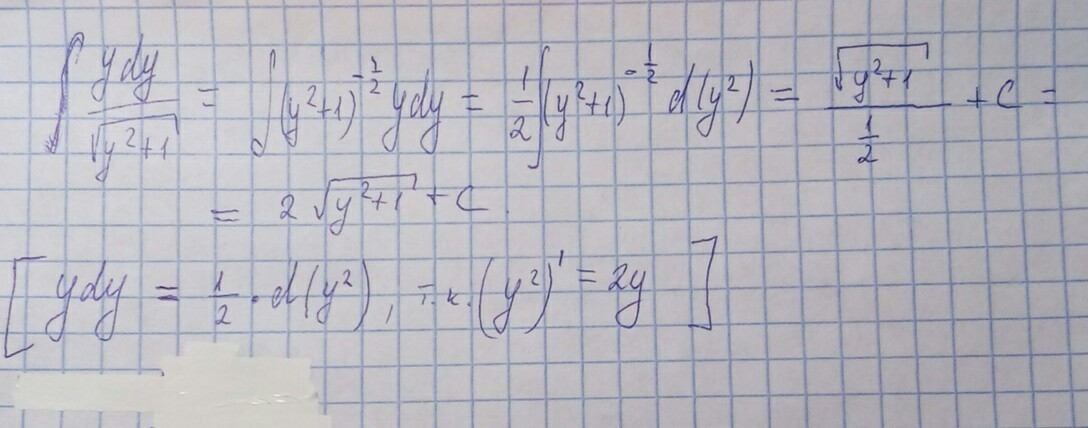 ∫ ydy/√(y²+1) = ∫(y²+1)^(-1/2) ydy = 1/2 ∫(y²+1)^(-1/2) d(y²) = √(y²+1)/(1/2) + C =
= 2√(y²+1) + C.
[ydy = 1/2 · d(y²), т.к. (y²)' = 2y]